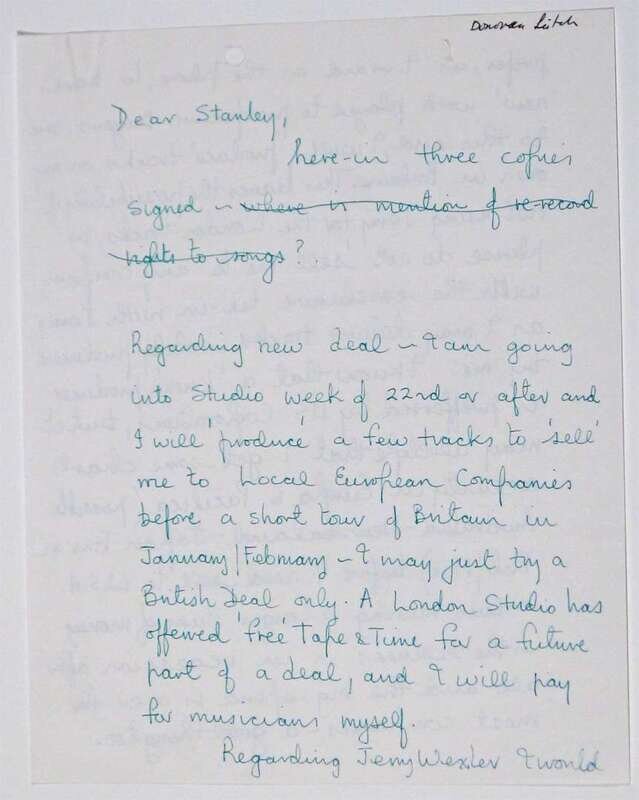 Donovan Leitch
Dear Stanley,
here-in three copies
signed - where is mention of re-record
rights to songs?
Regarding new deal - I am going
into Studio week of 22nd or after and
I will 'produce' a few tracks to 'sell'
me to Local European Companies
before a short tour of Britain in
January/February - I may just try a
British Deal only. A London Studio has
offered 'free' Tape & Time for a future
part of a deal, and I will pay
for musicians myself.
Regarding Jerry Wexler I would